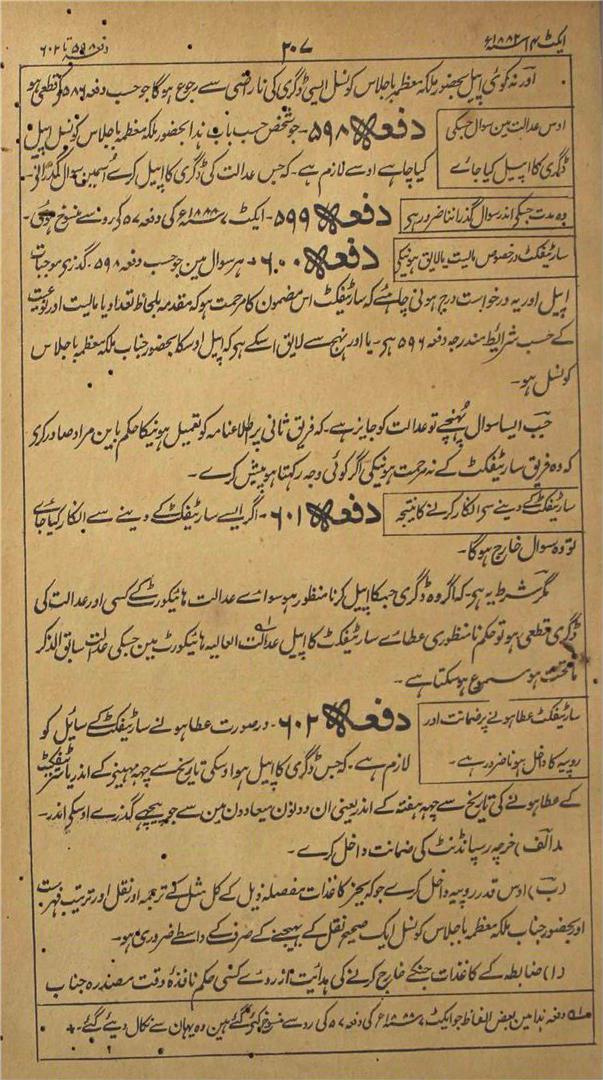 ایکٹ ۱۴ ۱۸۸۲ء
۳۰۷
دفعہ ۵۹۸ تا ۶۰۲
اور نہ کوئی اپیل بحضور ملکہ معظمہ باجلاس کونسل ایسی ڈگری کی ناراضی سے رجوع ہوگا جو حسب دفعہ ۵۸۶ قطعی ہو
اوس عدالت مین سوال جسکی
ڈگری کا اپیل کیا جاے
دفعہ ۵۹۸ - جو شخص حسب باب ہذا بحضور ملکہ معظمہ باجلاس کونسل اپیل
کیا چاہے اوسے لازم ہے - کہ جس عدالت کی ڈگری کا اپیل کرے اُسمین سوال گذرانے -
وہ مدت جسکی اندر سوال گذراننا ضرور ہی
دفعہ ۵۹۹ - ایکٹ ۷ ۱۸۸۸ء کی دفعہ ۵۷ کی رو سے منسوخ ہوئی -
سارٹیفکٹ درخصوص مالیت یا لایق ہونیکی
دفعہ ۶۰۰ - ہر سوال مین جو حسب دفعہ ۵۹۸ - گذرے موجبات
اپیل اور یہ درخواست درج ہونی چاہئے کہ سارٹیفکٹ اس مضمون کا مرحمت ہو کہ مقدمہ بلحاظ تعداد یا مالیت اور نوعیت
کے حسب شرائط مندرجہ دفعہ ۵۹۶ ہی - یا اور نہج سے لایق اسکے ہی کہ اپیل اوسکا بحضور جناب ملکہ معظمہ باجلاس
کونسل ہو -
جب ایسا سوال پہُنچے تو عدالت کو جایز ہے - کہ فریق ثانی پر اطلاعنامہ کو تعمیل ہونیکا حکم باین مراد صادر کری
کہ وہ فریق سارٹیفکٹ کے نہ مرحمت ہونیکی اگر کوئی وجہ رکھتا ہو پیش کرے -
سارٹیفکٹ کے دینے سی انکار کرنے کا نتیجہ
دفعہ ۶۰۱ - اگر ایسے سارٹیفکٹ کے دینے سے انکار کیا جاے
تو وہ سوال خارج ہوگا -
مگر شرط یہ ہی - کہ اگر وہ ڈگری جسکا اپیل کرنا منظور ہو سواے عدالت ہائیکورٹ کے کسی اور عدالت کی
ڈگری قطعی ہو تو حکم نامنظوری عطاے سارٹیفکٹ کا اپیل عدالت العالیہ ہائیکورٹ مین جسکی عدالت سابق الذکر
ماتحت ہو مسموع ہو سکتا ہے -
سارٹیفکٹ عطا ہونے پر ضمانت اور
روپیہ کا داخل ہونا ضرور ہے -
دفعہ ۶۰۲ - درصورت عطا ہونے سارٹیفکٹ کے سایل کو
لازم ہے - کہ جس ڈگری کا اپیل ہو اوسکی تاریخ سے چہہ مہینے کے اندر یا سارٹیفکٹ
کے عطا ہونے کی تاریخ سے چہہ ہفتہ کے اندر یعنی ان دونون میعادون مین سے جو پیچھے گذرے اوسکی اندر -
(الف) خرچہ رسپانڈنٹ کی ضمانت داخل کرے -
(ب) اوس قدر روپیہ داخل کرے جو کہ بجز کاغذات مفصلہ ذیل کے کل مثل کے ترجمہ اور نقل اور ترتیب فہرست
اور بحضور جناب ملکہ معظمہ باجلاس کونسل ایک صحیح نقل کے بھیجنے کے صرف کے واسطے ضروری ہو -
(۱) ضابطہ کے کاغذات جنکے خارج کرنے کی ہدایت ازروے کسی حکم نافذہ وقت مصدرہ جناب
دفعہ ہذا مین بعض الفاظ جو ایکٹ ۷ ۱۸۸۸ء کی دفعہ ۵۷ کی رو سے منسوخ کئے گئے ہین وہ یہان سے نکال دیئے گئے -